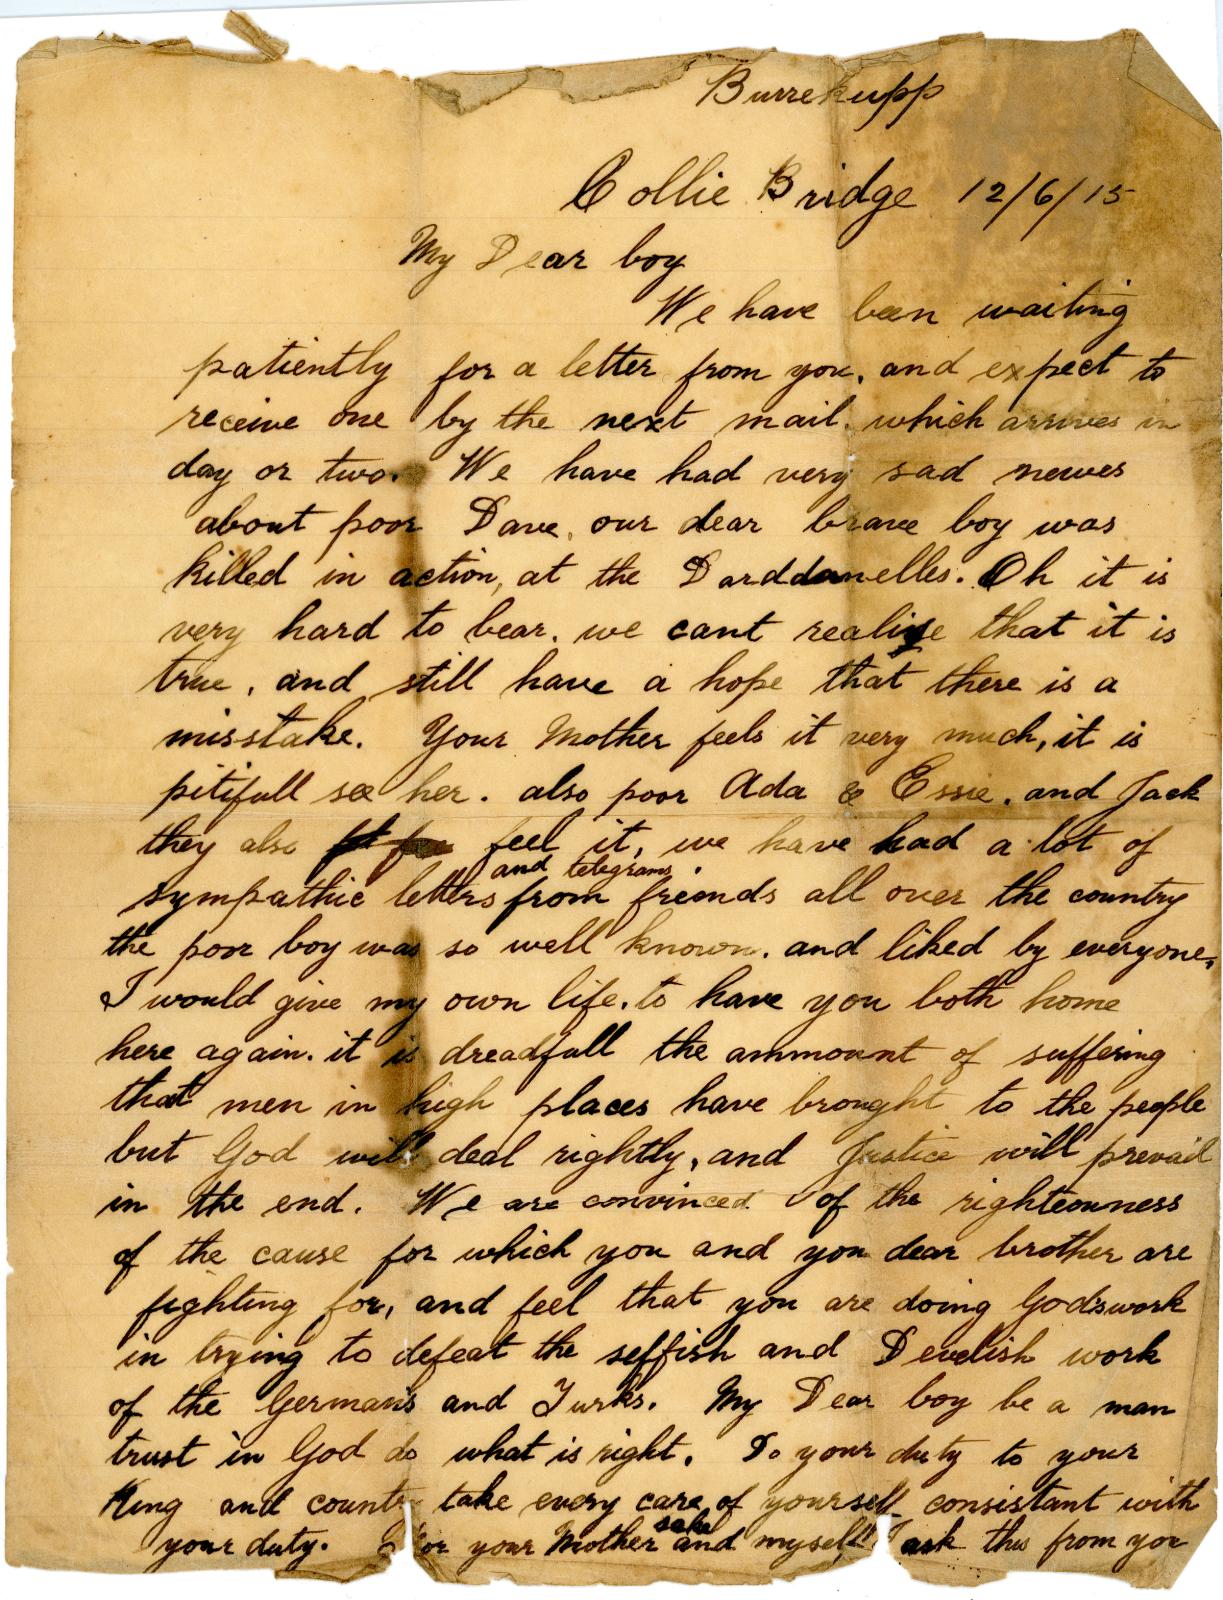 Burrekupp
Collie Bridge 12/6/15
My Dear boy
We have been waiting
patiently for a letter from you, and expect to
receive one by the next mail. which arrives in
day or two. We have had very sad newes
about poor Dave, our dear brave boy was
killed in action, at the Darddanelles. Oh it is
very hard to bear. we cant realise that it is
true, and still have a hope that there is a
misstake. Your Mother feels it very much, it is
pitifull see her. also poor Ada & Essie. and Jack
they also feel it, we have had a lot of
and telegrams
sympathic letters from freinds all over the country
the poor boy was so well known. and liked by everyone,
I would give my own life. to have you both home
here again. it is dreadfull the ammount of suffering
that men in high places have brought to the people
but God will deal rightly, and Justice will prevail
in the end. We are convinced of the righteouness
of the cause for which you and you dear brother are
fighting for, and feel that you are doing God's work
in trying to defeat the selfish and Develish work
of the German's and Turks. My Dear boy be a man
trust in God do what is right. Do your duty to your
King and country take every care of yourself consistant with
sake
your duty. For your Mother and myself I ask this from you